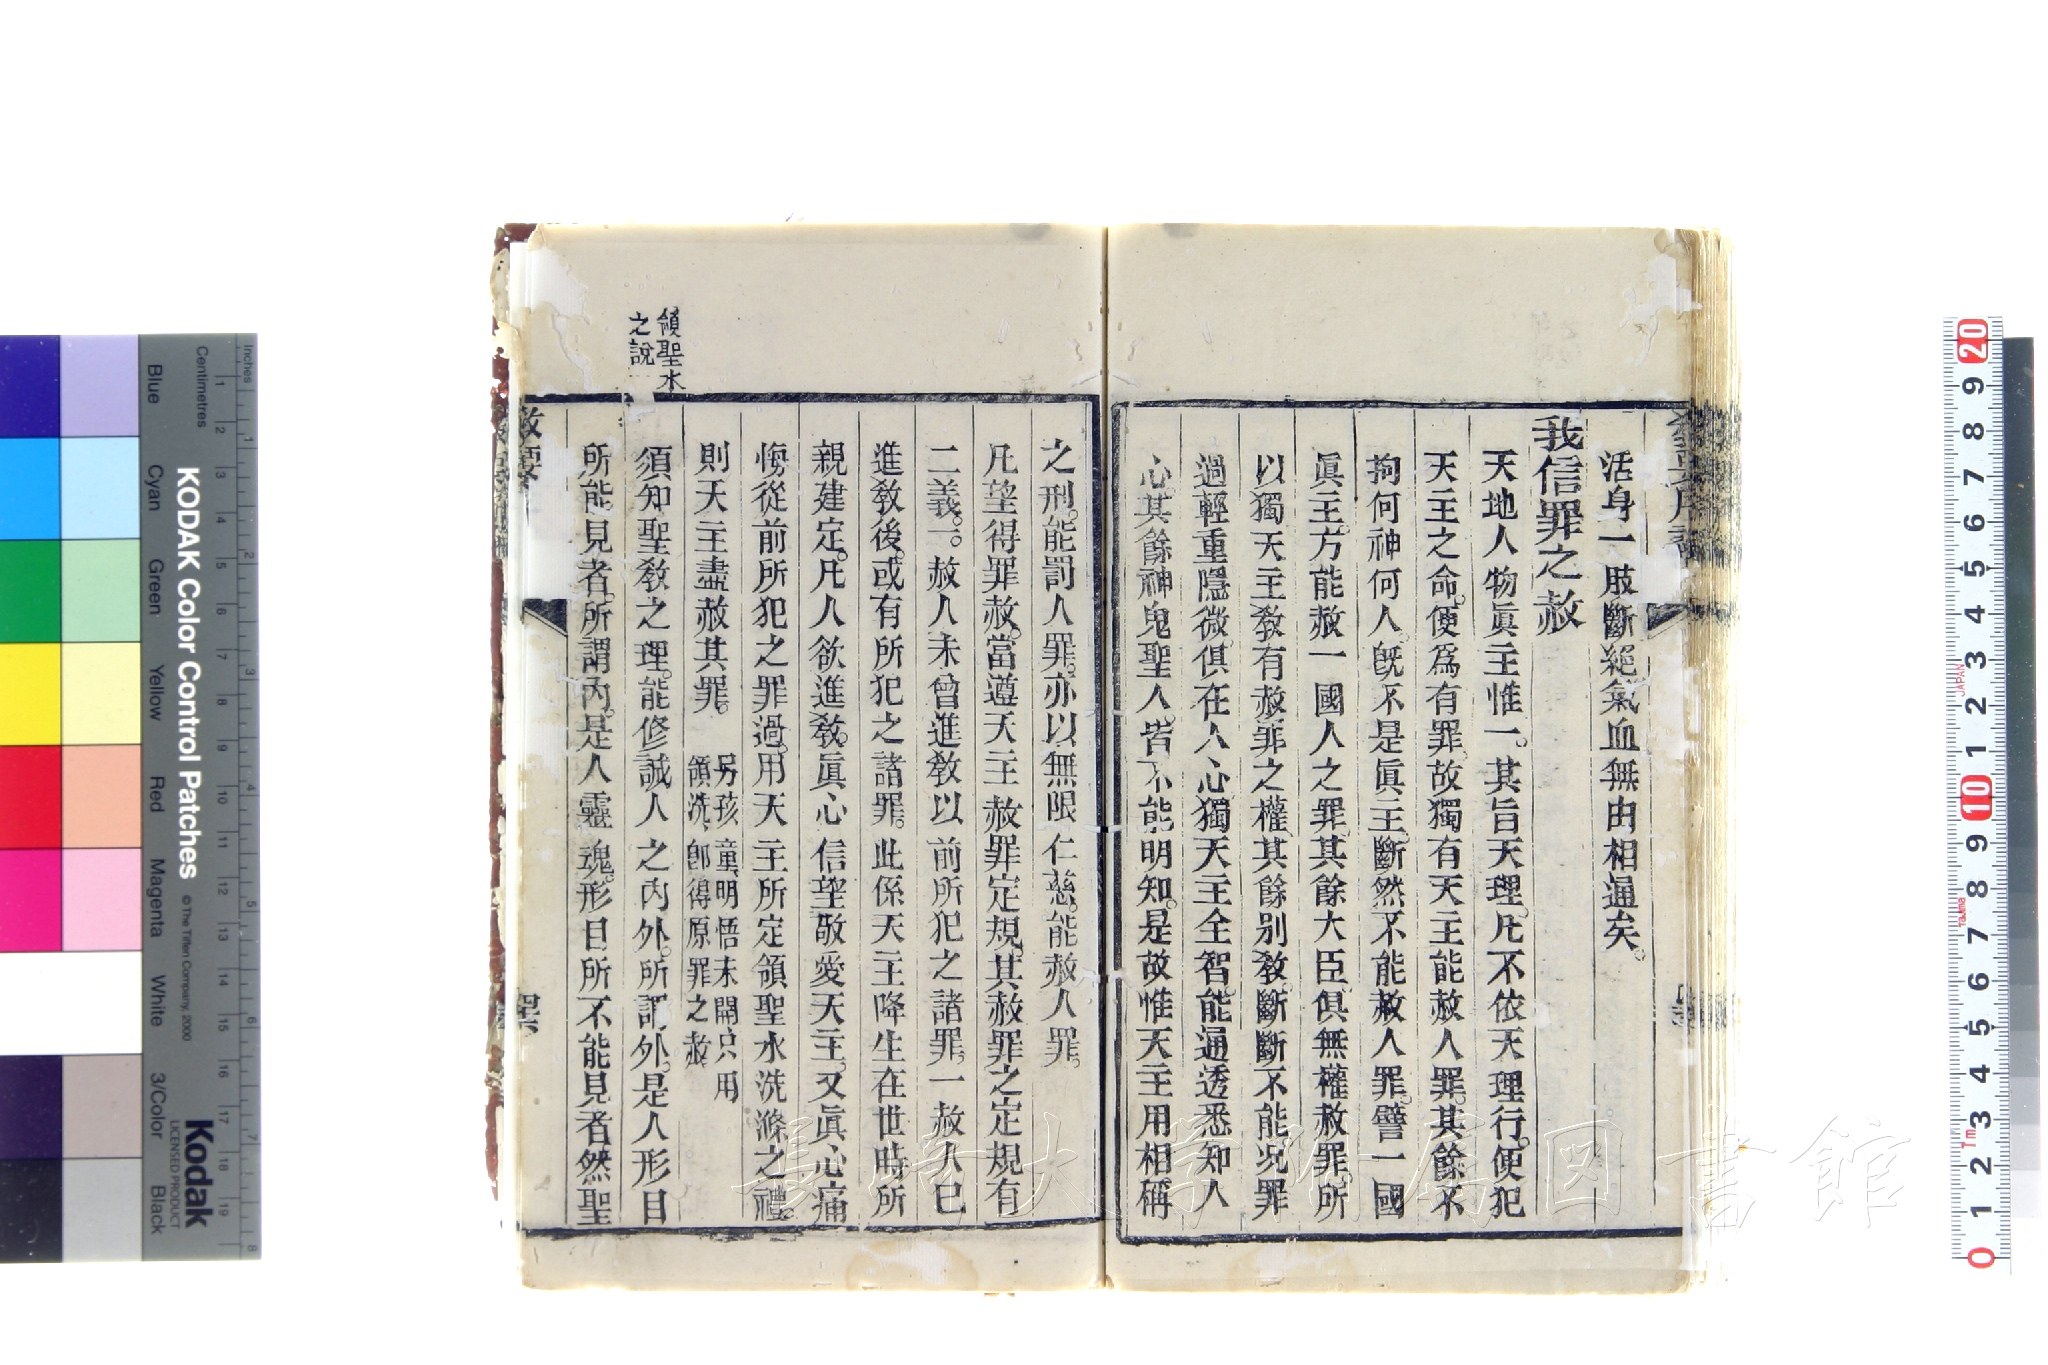 活身一肢斷絕氣血無由相通矣。
我信罪之赦
天地人物眞主惟一。其旨天理。凡不依天理行。便犯
天主之命。便爲有罪。故獨有天主能赦人罪。其餘不
拘何神何人。旣不是眞主。斷然不能赦人罪。譬一國
眞主。方能赦一國人之罪。其餘大臣。俱無權赦罪。所
以獨天主敎有赦罪之權。其餘別敎。斷斷不能。况罪
過輕重隱微。俱在人心。獨天主全智。能通透悉知人
心。其餘神鬼聖人。皆不能明知。是故惟天主用相稱
之刑。能罰人罪。亦以無限仁慈。能赦人罪。
凡望得罪赦。當遵天主赦罪定規。其赦罪之定規有
二義。一。赦人未曾進敎以前所犯之諸罪。一赦人已
進敎後。或有所犯之諸罪。此係天主降生在世時所
親建定。凡人欲進敎。眞心信望敬愛天主。又眞心痛
悔從前所犯之罪過。用天主所定領聖水洗滌之禮。
則天主盡赦其罪。另孩童明悟未開只用
領洗、卽得原罪之赦
領聖水
之說
須知聖敎之理。能修誠人之內外。所謂外。是人形目
所能見者。所謂內。是人靈魂。形目所不能見者。然聖
敎要
罕六
KODAK Color Control Patches
© The Tiffen Company, 2000
Kodak
LICENSED PRODUCT
Inches
Centimetres
Blue
Cyan
Green
Yellow
Red
Magenta
White
3/Color
Black
長崎大学附属図書館
JAPAN